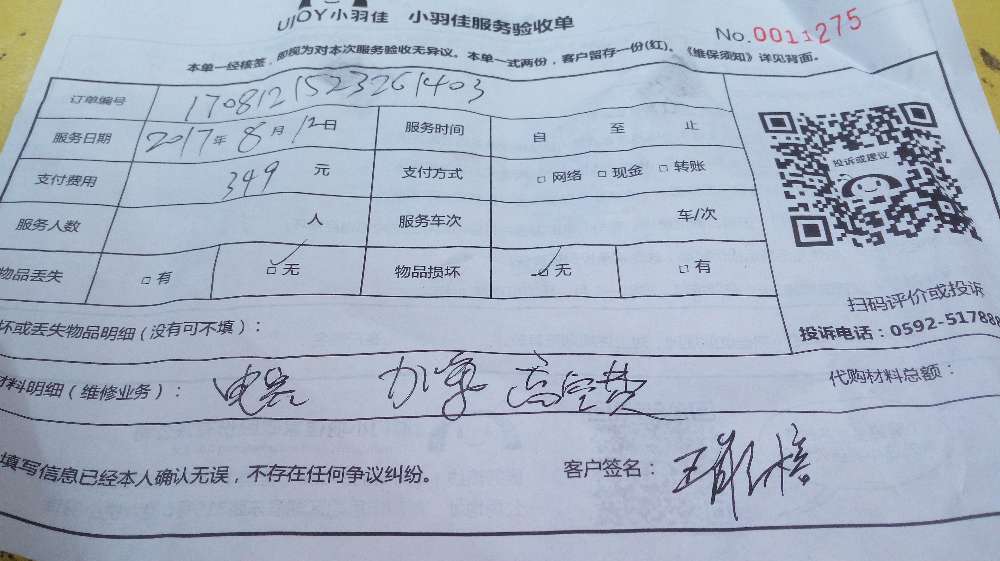 UJOY小羽佳 小羽佳服务验收单
No.0011275
本单一经核签,即视为对本次服务验收无异议。本单一式两份,客户留存一份(红)。《维保须知》详见背面。
订单编号 1708121523261403
服务日期 2017年8月12日 服务时间 自 至 止
支付费用 349 元 支付方式 □网络 □现金 □转账
服务人数 人 服务车次 车/次
物品丢失 □有 □无 物品损坏 □无 □有
投诉或建议
扫码评价或投诉
投诉电话:0592-517888
坏或丢失物品明细(没有可不填):
材料明细(维修业务): 电容 高空费
代购材料总额:
填写信息已经本人确认无误,不存在任何争议纠纷。
客户签名: